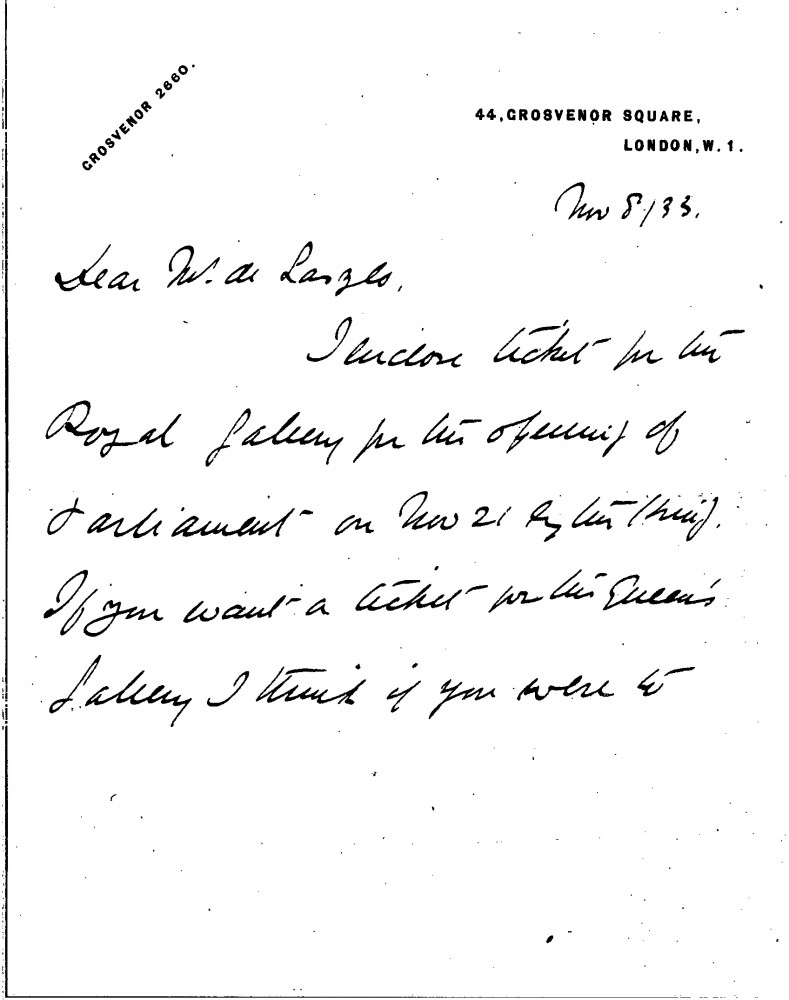 GROSVENOR 2660.
44, GROSVENOR SQUARE,
LONDON, W. 1.
Nov 8/33.
Dear Mr. de Laszlo,
I enclose ticket for the
Royal Gallery for the opening of
Parliament on Nov 21 by the King.
If you want a ticket for the Queen's
Gallery I think if you were to